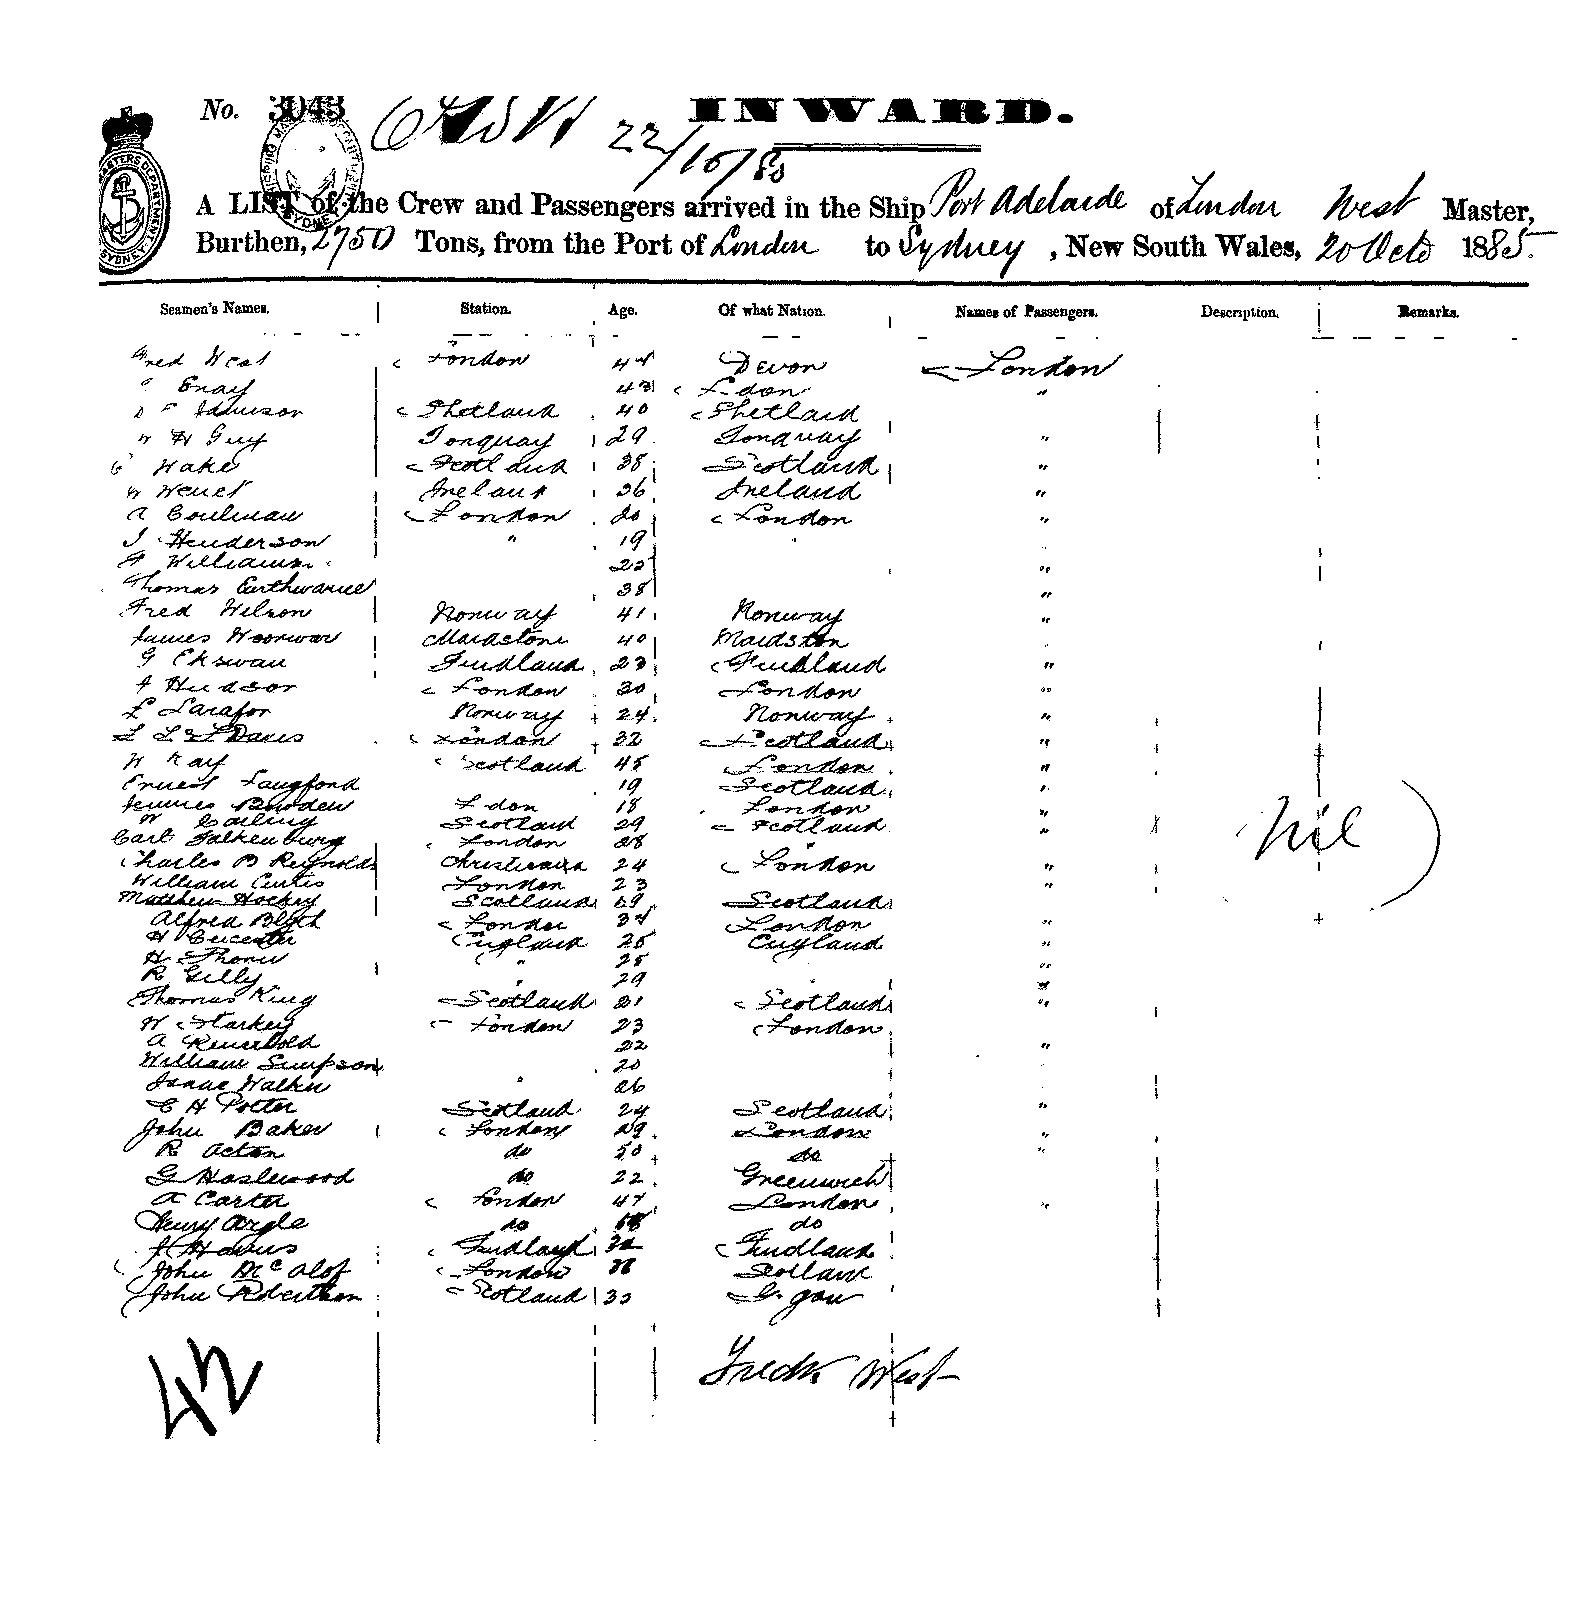 No. 3043 INWARD.
22/10/85
A LIST of the Crew and Passengers arrived in the Ship Port Adelaide of London West Master,
Burthen, 2750 Tons, from the Port of London to Sydney, New South Wales, 20 Octo 1885.
Seamen's Names. Station. Age. Of what Nation. Names of Passengers. Description. Remarks.
Fred West London 44 Devon London
" Gray 43 L don "
Shetland 40 Shetland
W H Guy Torquay 29 Torquay "
Wake Scotland 38 Scotland "
W Ireland 36 Ireland "
A London 20 London "
J Henderson " 19 "
Williams "
Thomas 38 "
Fred Wilson Norway 41 Norway "
James Maidstone 40 Maidston
G Ekswan Findland 23 Findland "
Hudson London 30 London "
Norway 24 Norway "
Davis London 32 Scotland "
W Ray Scotland 45 London "
Ernest Langford 19 Scotland "
James Bowden L don 18 London "
W Scotland 29 Scotland " Nil
Carl Falkenburg London 28 "
Charles B Reynolds 24 London "
William Curtis London 23 "
Matthew Hockey Scotland Scotland
Alfred Blyth London 34 London "
H Leicester England 25 England "
H " 25 "
R Gilly " 29 "
Thomas King Scotland 21 Scotland "
W Starkey London 23 London
A 22 "
William Simpson 20
Isaac Walker " 26
C H Potter Scotland 24 Scotland "
John Baker London 29 London "
R Acton do 50 do "
G Haslewood do 22 Greenwich
A Carter London 47 London "
Henry Argle do do
Findland Findland
John London Scotland
John Robertson Scotland 33
42 Fredk West